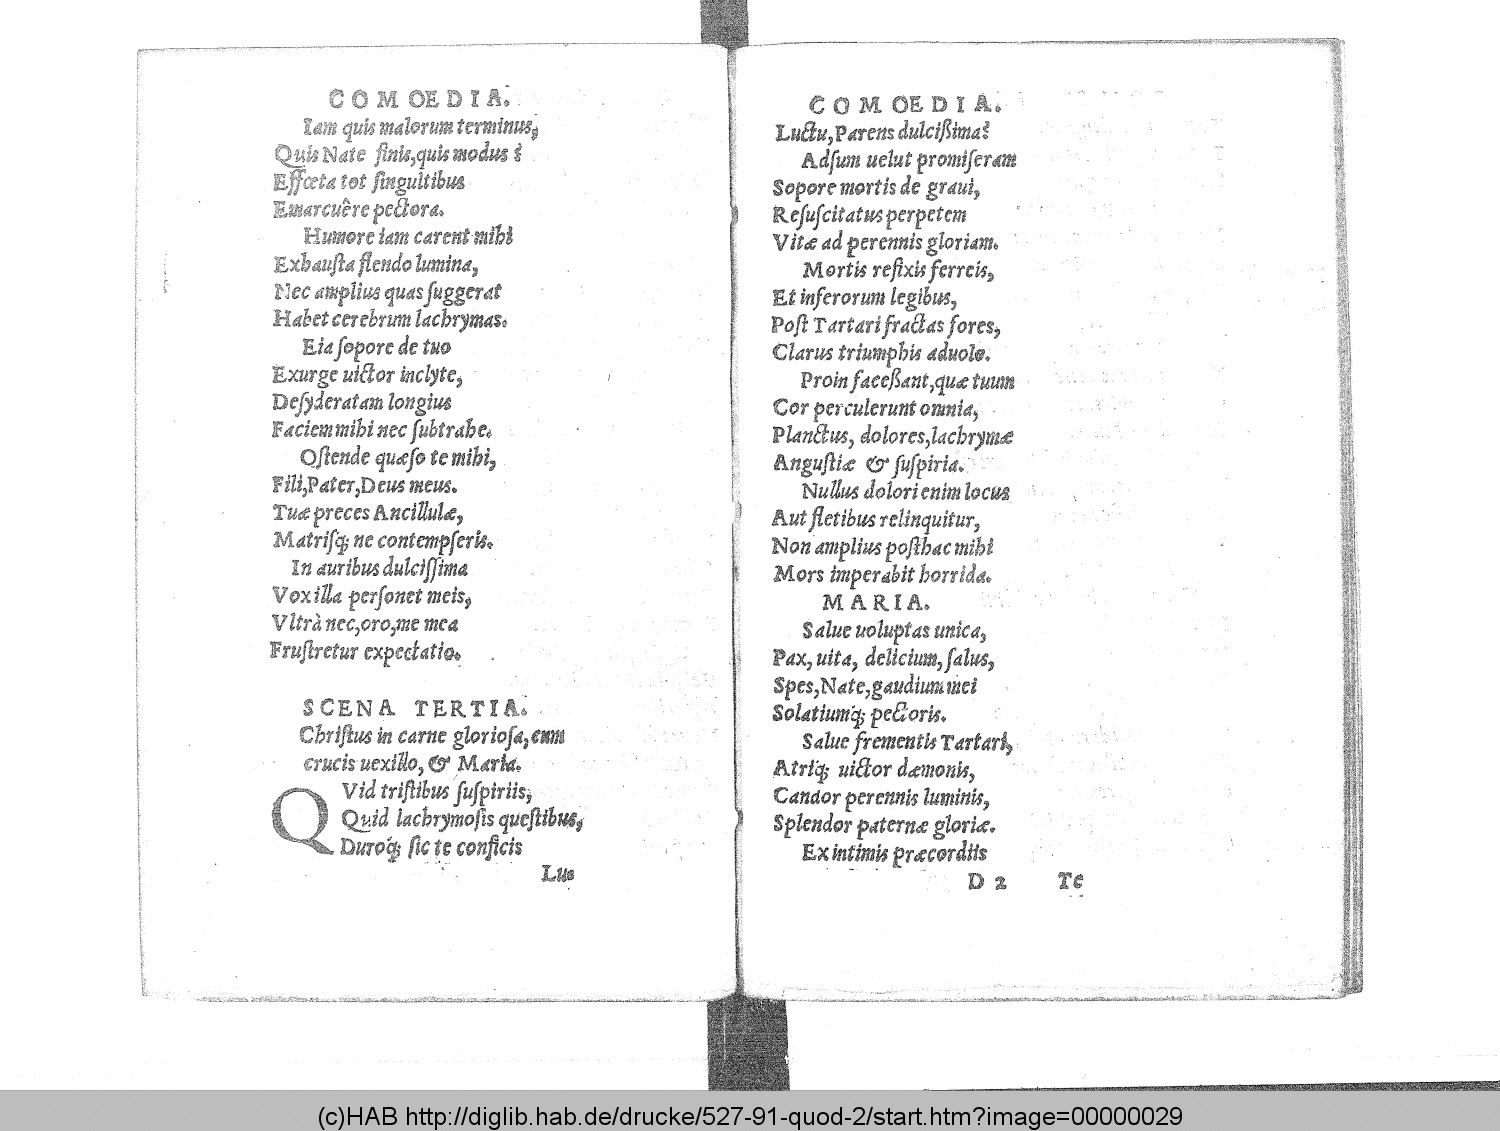 COMOEDIA.
Iam quis malorum terminus,
Quis Nate finis, quis modus?
Effœta tot ſingultibus
Emarcuêre pectora.
Humore iam carent mihi
Exhauſta flendo lumina,
Nec amplius quas ſuggerat
Habet cerebrum lachrymas.
Eia ſopore de tuo
Exurge uictor inclyte,
Deſyderatam longius
Faciem mihi nec ſubtrahe.
Oſtende quæſo te mihi,
Fili, Pater, Deus meus.
Tuæ preces Ancillulæ,
Matriſq́; ne contempſeris.
In auribus dulciſſima
Vox illa perſonet meis,
Vltrà nec, oro, me mea
Fruſtretur expectatio.
SCENA TERTIA.
Chriſtus in carne glorioſa, cum
crucis uexillo, & Maria.
QVid triſtibus ſuſpiriis,
Quid lachrymoſis queſtibus,
Duroq́; ſic te conficis
Lu-
COMOEDIA.
Luctu, Parens dulcißima?
Adſum uelut promiſeram
Sopore mortis de graui,
Reſuſcitatus perpetem
Vitæ ad perennis gloriam.
Mortis refixis ferreis,
Et inferorum legibus,
Poſt Tartari fractas fores,
Clarus triumphis aduolo.
Proin faceßant, quæ tuum
Cor perculerunt omnia,
Planctus, dolores, lachrymæ
Anguſtiæ & ſuſpiria.
Nullus dolori enim locus
Aut fletibus relinquitur,
Non amplius poſthac mihi
Mors imperabit horrida.
MARIA.
Salue uoluptas unica,
Pax, uita, delicium, ſalus,
Spes, Nate, gaudium mei
Solatiumq́; pectoris.
Salue frementis Tartari,
Atriq́; uictor dæmonis,
Candor perennis luminis,
Splendor paternæ gloriæ.
Ex intimis præcordiis
D 2 Te
(c)HAB http://diglib.hab.de/drucke/527-91-quod-2/start.htm?image=00000029